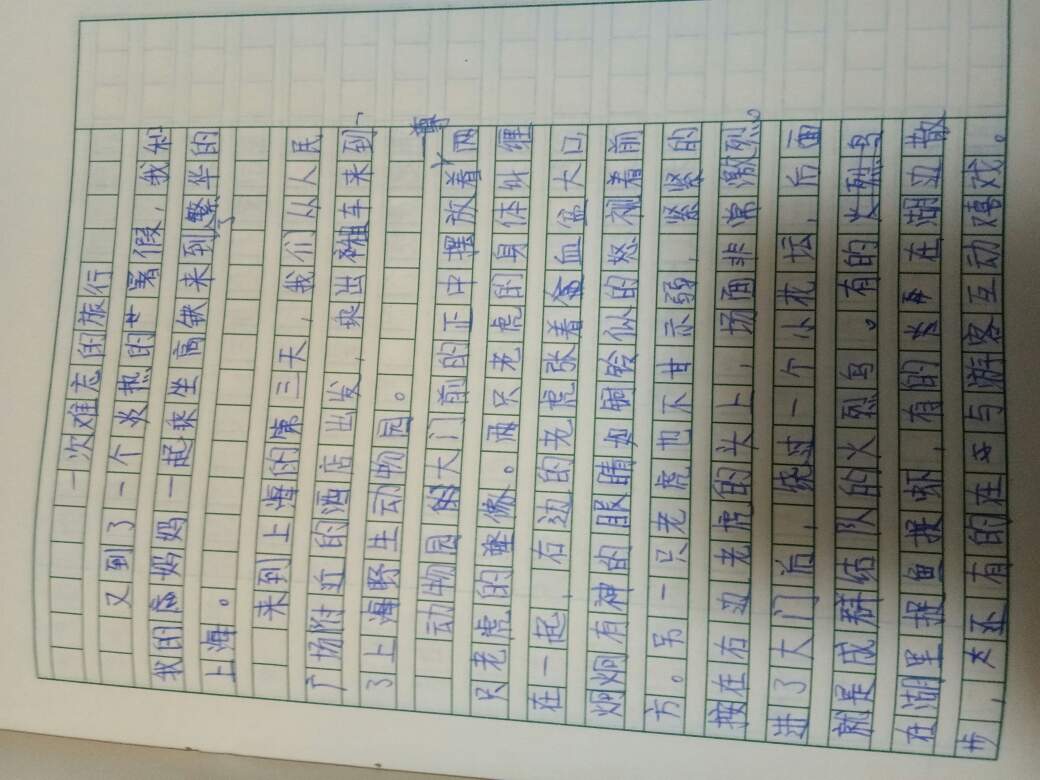 一次难忘的旅行
又到了一个炎热的暑假，我和
我的高妈妈一起乘坐高铁来到繁华的
上海。
来到上海的第三天，我们从人民
广场附近的酒店出发，乘出租车来到
了上海野生动物园。
动物园大门前的正中摆放着一尊两
只老虎的雕像。两只老虎的身体纠缠
在一起，右边的老虎张着血盆大口，
炯炯有神的眼睛如铜铃似的怒视着前
方。另一只老虎也不甘示弱，紧紧的
按在右边老虎的头上，场面非常激烈。
进了大门后，绕过一个小花坛，后面
就是成群结队的火烈鸟。有的火烈鸟
在湖里捉鱼捉虾，有的在湖边散
步，还有的在与游客互动嬉戏。